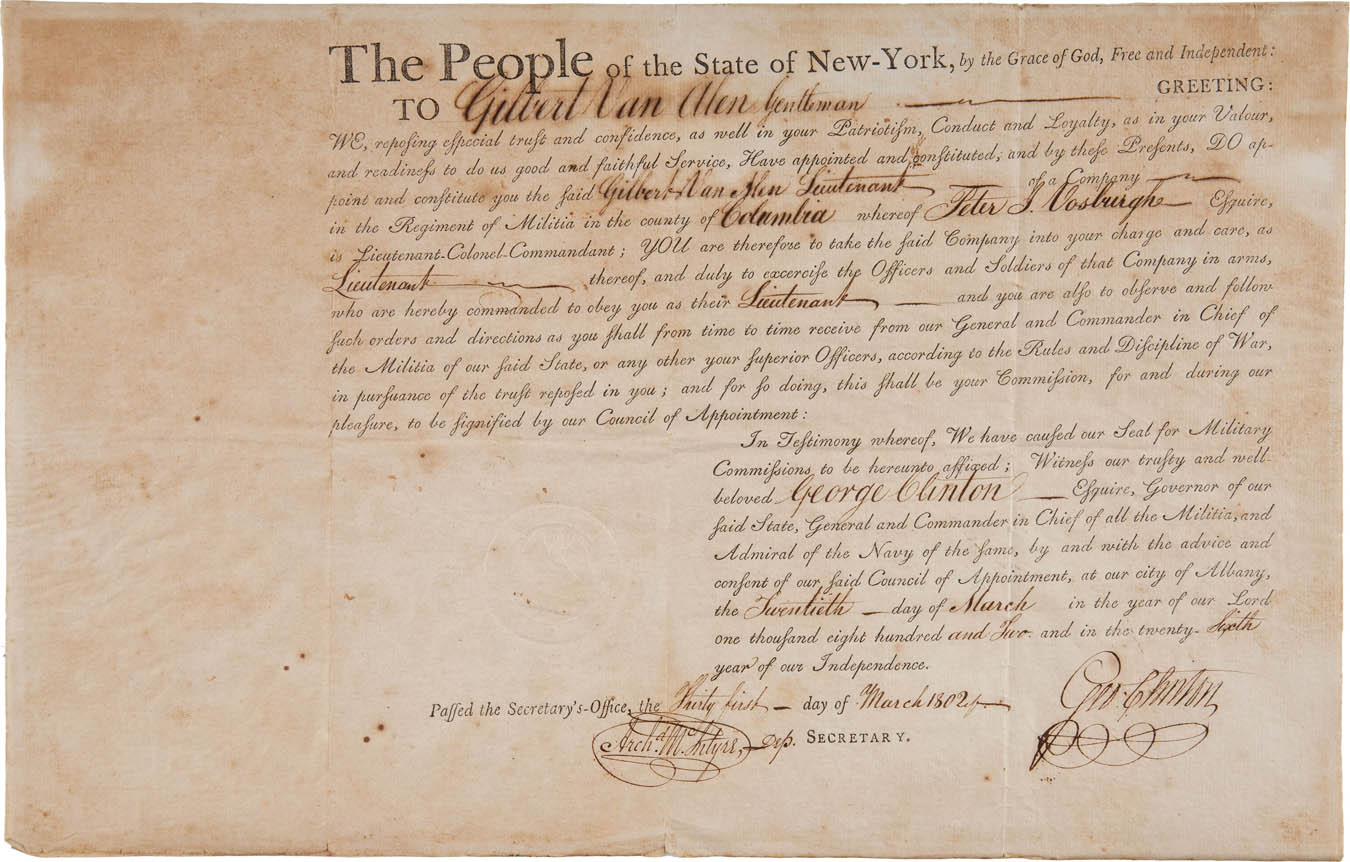 The People of the State of New-York, by the Grace of God, Free and Independent:
TO Gilbert Van Alen Gentleman GREETING:
WE, repoſing eſpecial truſt and confidence, as well in your Patriotiſm, Conduct and Loyalty, as in your Valour,
and readineſs to do us good and faithful Service, Have appointed and conſtituted, and by theſe Preſents, DO ap-
point and conſtitute you the ſaid Gilbert Van Alen Lieutenant of a Company
in the Regiment of Militia in the county of Columbia whereof Peter I. Vosburgh Eſquire,
is Lieutenant-Colonel-Commandant; YOU are therefore to take the ſaid Company into your charge and care, as
Lieutenant thereof, and duly to excerciſe the Officers and Soldiers of that Company in arms,
who are hereby commanded to obey you as their Lieutenant and you are alſo to obſerve and follow
ſuch orders and directions as you ſhall from time to time receive from our General and Commander in Chief of
the Militia of our ſaid State, or any other your ſuperior Officers, according to the Rules and Diſcipline of War,
in purſuance of the truſt repoſed in you; and for ſo doing, this ſhall be your Commiſſion, for and during our
pleaſure, to be ſignified by our Council of Appointment:
In Teſtimony whereof, We have cauſed our Seal for Military
Commiſſions to be hereunto affixed; Witneſs our truſty and well-
beloved George Clinton Eſquire, Governor of our
ſaid State, General and Commander in Chief of all the Militia, and
Admiral of the Navy of the ſame, by and with the advice and
conſent of our ſaid Council of Appointment, at our city of Albany,
the Twentieth day of March in the year of our Lord
one thouſand eight hundred and Two and in the twenty-Sixth
year of our Independence.
Paſſed the Secretary's-Office, the Thirty first day of March 1802
Geo. Clinton
Archd. McIntyre, Dep. SECRETARY.